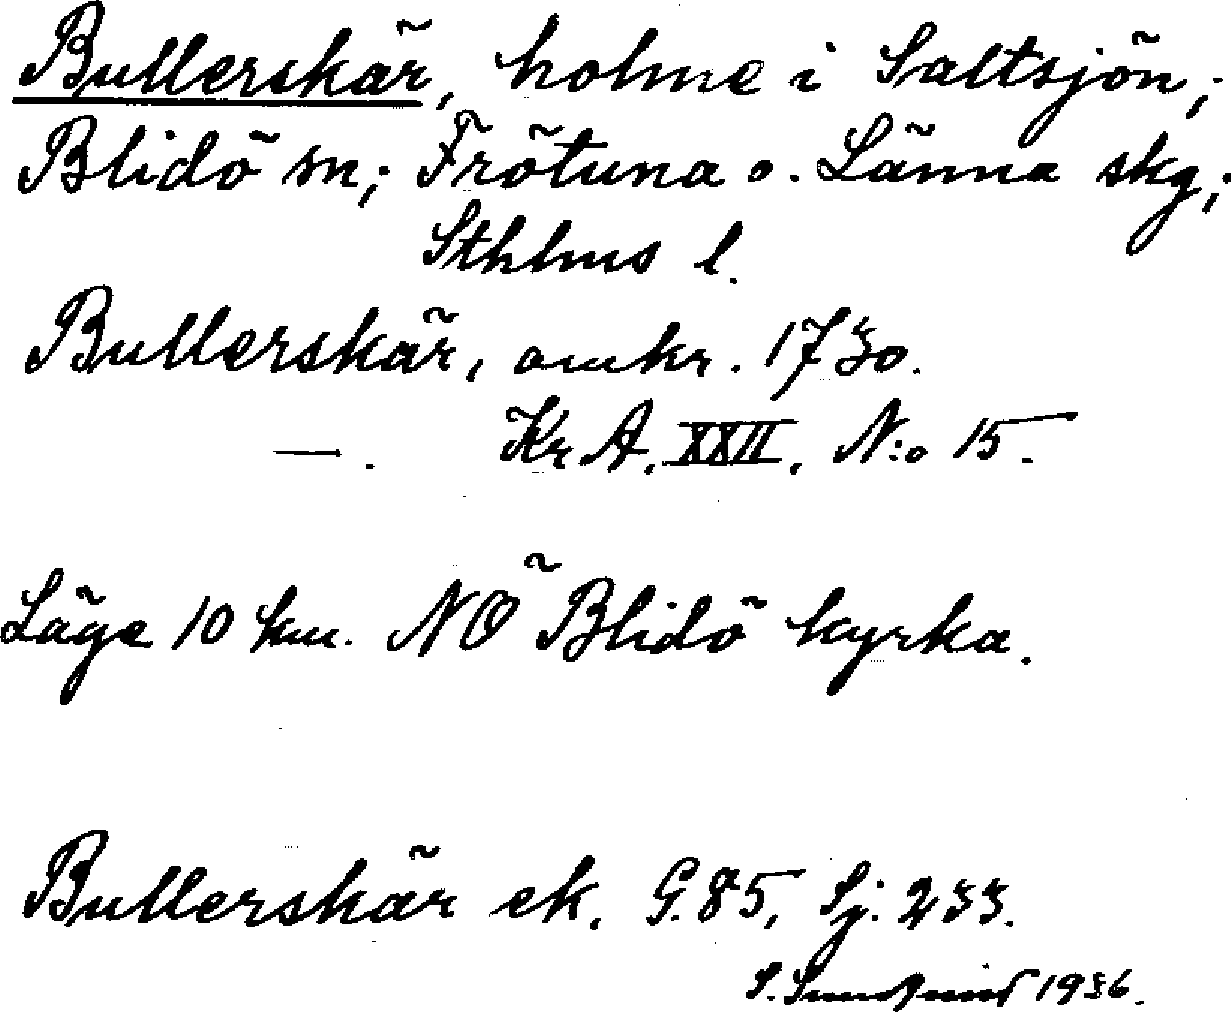 Bullerskär, holme i Saltsjön;
Blidö sn; Frötuna o. Länna skg;
Sthlms l.
Bullerskär, omkr. 1730.
—. Kr A. XXII. N:o 15.
Läge 10 km. NÖ Blidö kyrka.
Bullerskär ek. G. 85, Sj: 233.
S. Sundqvist 1936.